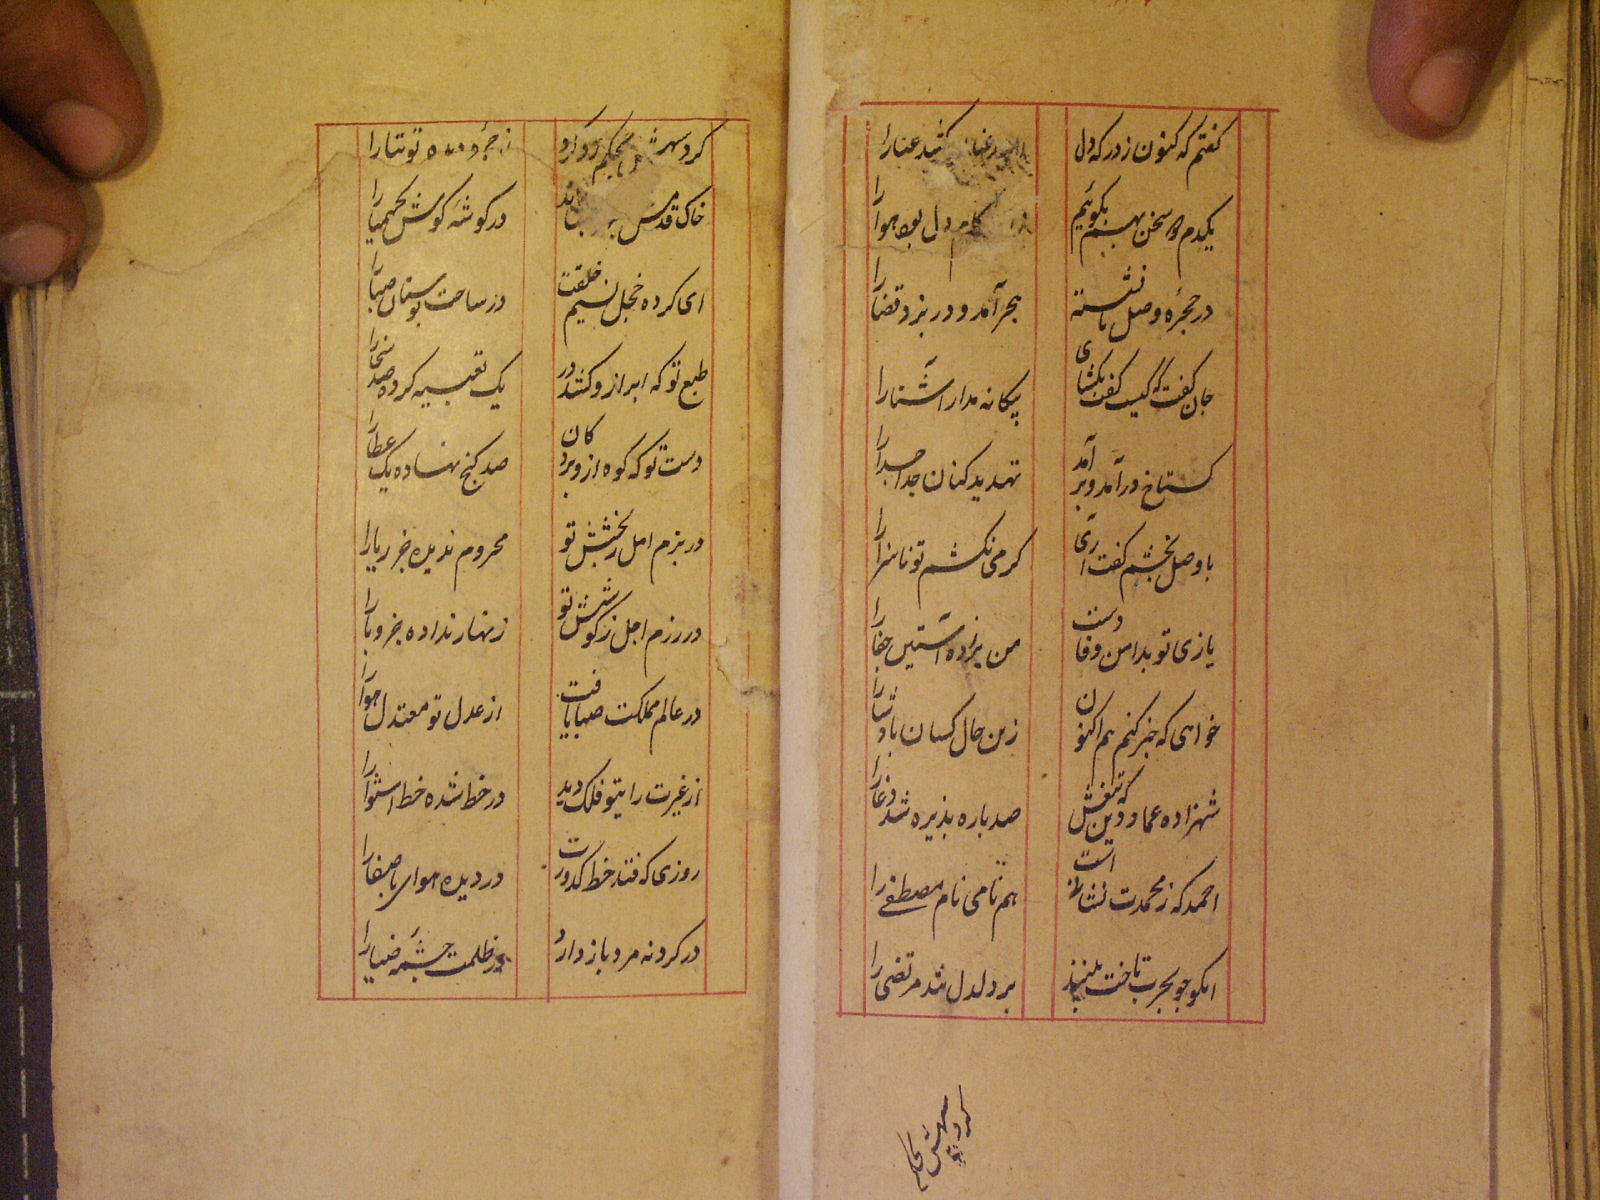 گفتم که کنون ز درکه دل
کشد عنارا
یکدم دو سخن بهم بگوئیم
دل بود هوا را
در حجرهٔ وصل نانشسته
هجر آمد و در بزد قضا را
جان گفت که کیست گفت بکشای
بیگانه مدار آشنا را
گستاخ درآمد و برآمد
تهدید کنان جدا جدا را
با وصل بخشم گفت آری
گر می نکشم تو ناسزا را
یازی تو بدامن وفا دست
من بر زده آستین جفا را
خواهی که خبر کنم هم اکنون
زین حال کسان پادشا را
شهزاده عماد دین که تیغش
صد باره پذیره شد وغا را
احمد که ز محمدت نشان است
هم نامی نام مصطفی را
انکو چو بحرب تاخت بنیند
بر دلدل تند مرتضی را
کرد سپهرش
کرد سپهرش محکم
توتیا را
خاک قدمش
در گوشه گوش کیمیا را
ای کرده خجل نسیم خلقت
در ساحت بوستان صبا را
طبع تو که ابر ازو کشد در
یک تعبیه کرده صد سخا را
دست تو که کوه ازو برد کان
صد گنج نهاده یک عطا را
در بزم امل ز بخشش تو
محروم ندیده جز ریا را
در رزم اجل ز کوشش تو
زنهار نداده جز وبا را
در عالم مملکت صبا یافت
از عدل تو معتدل هوا را
از غیرت رایتو فلک دید
در خط شده خط استوا را
روزی که فتد خط کدورت
در دیده هوای با صفا را
در کرد نه مرد باز دارد
در ظلمت چشمه ضیا را